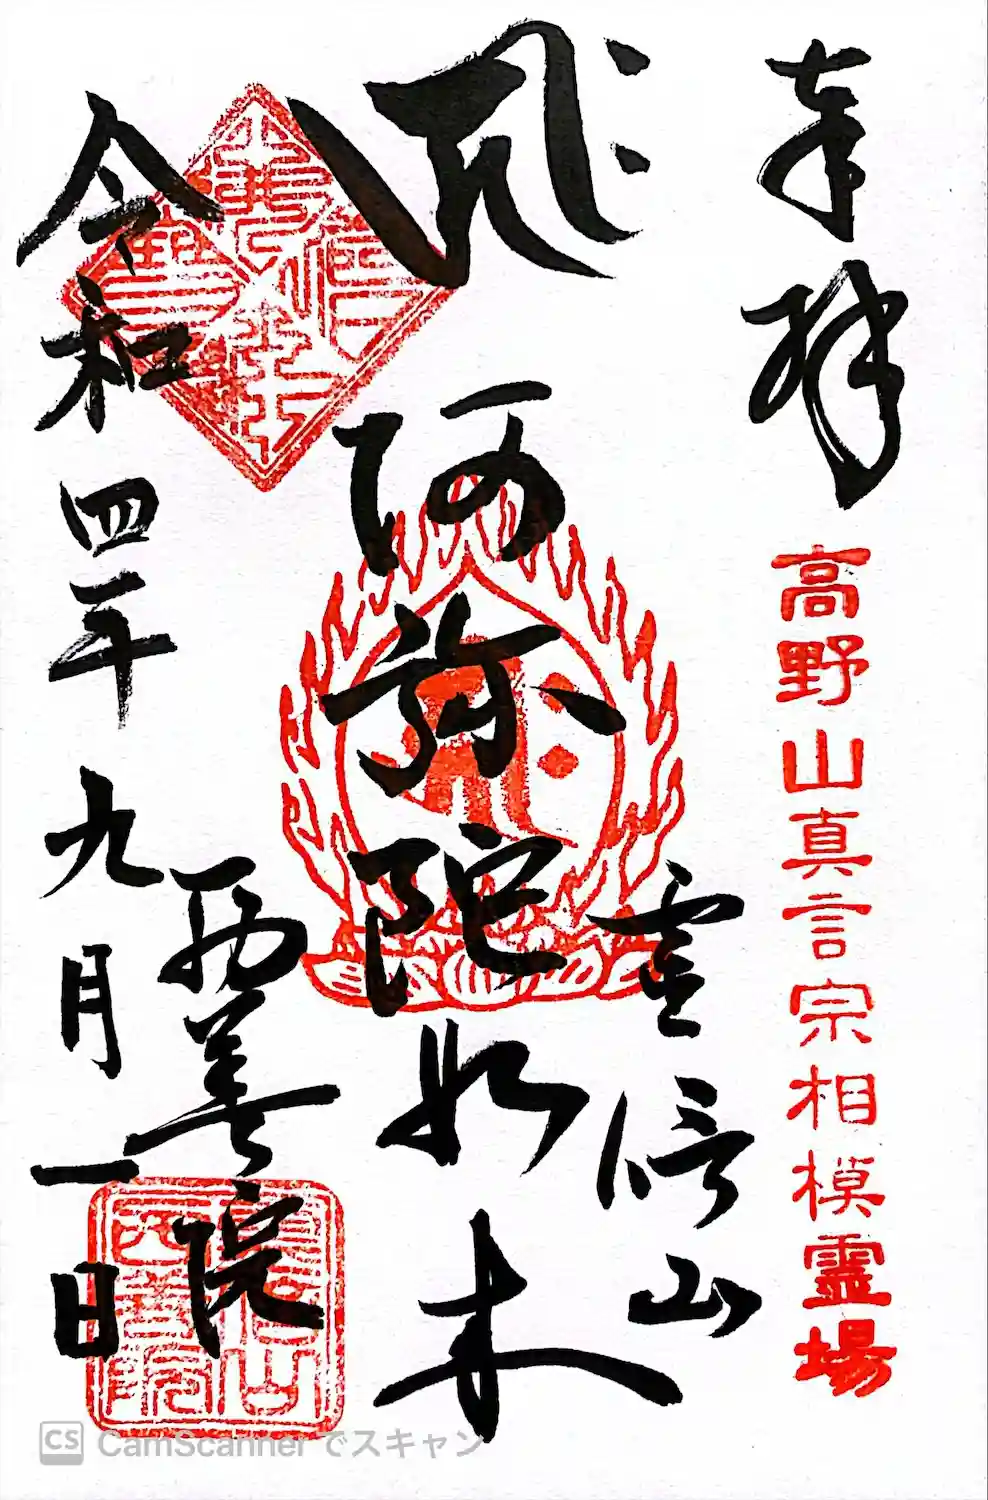 奉拝
高野山真言宗相模霊場
𑖮𑖿𑖨𑖱𑖾
阿弥陀如来
霊信山
西善院
令和四年九月一日
CS CamScannerでスキャン